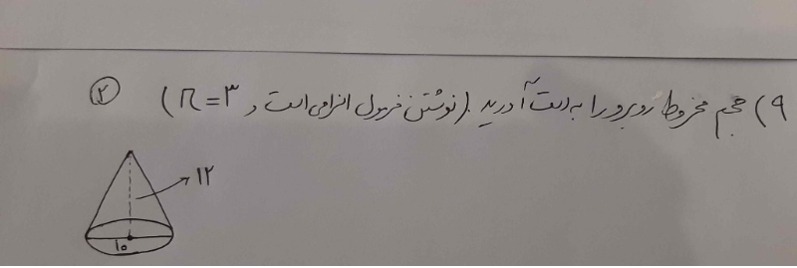 ۹) حجم مخروط روبرو را به دست آورید. (نوشتن فرمول الزامی است و π=۳) ۲
۱۲
۱۰